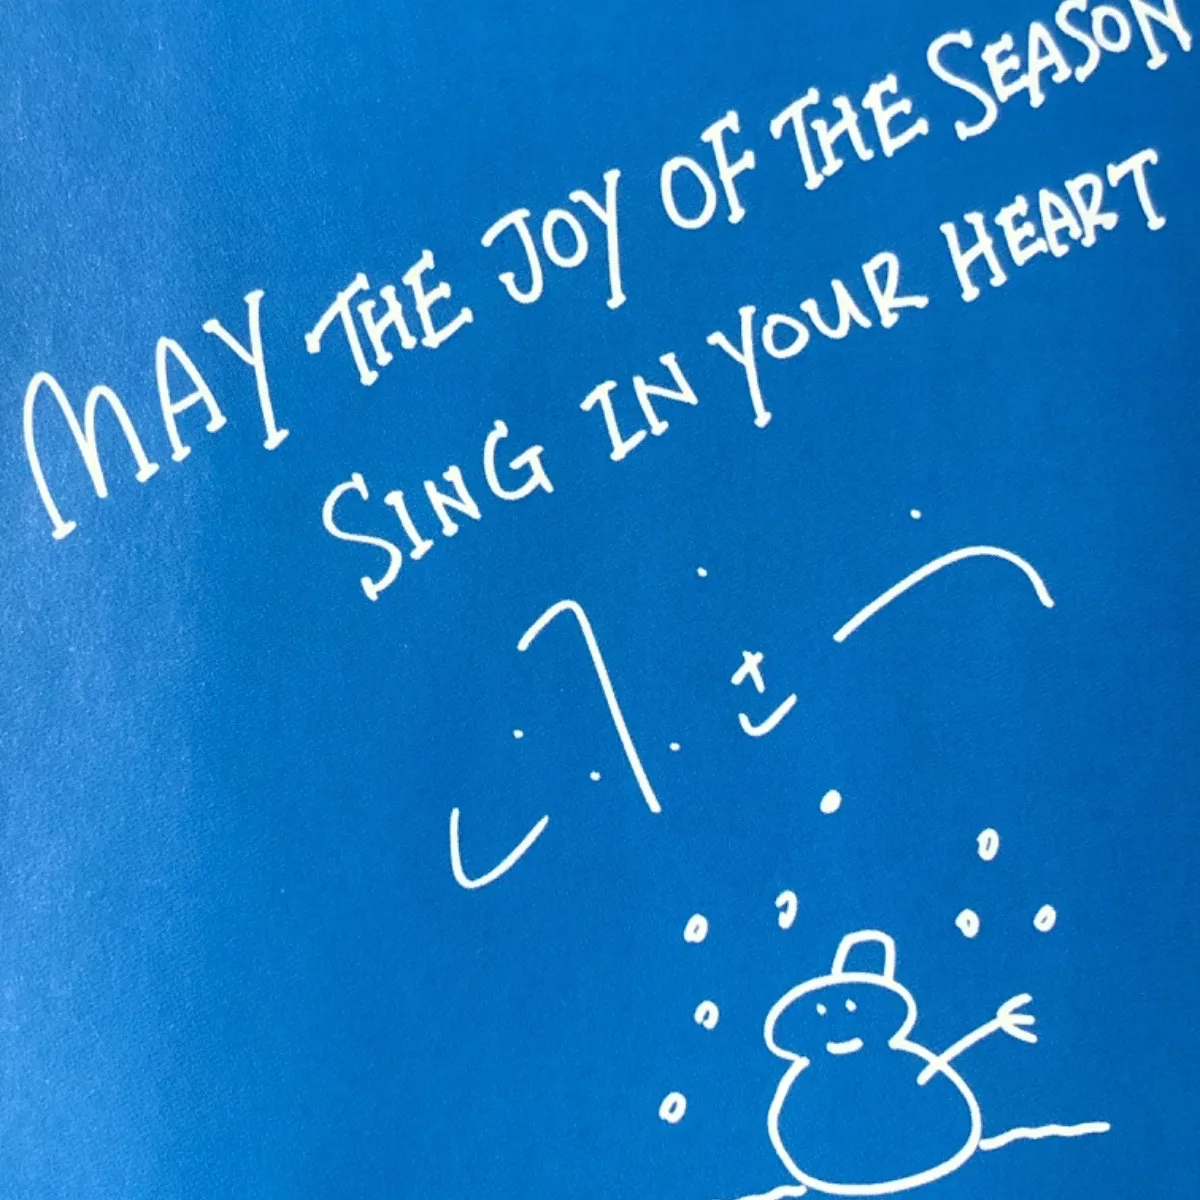 MAY THE JOY OF THE SEASON
SING IN YOUR HEART